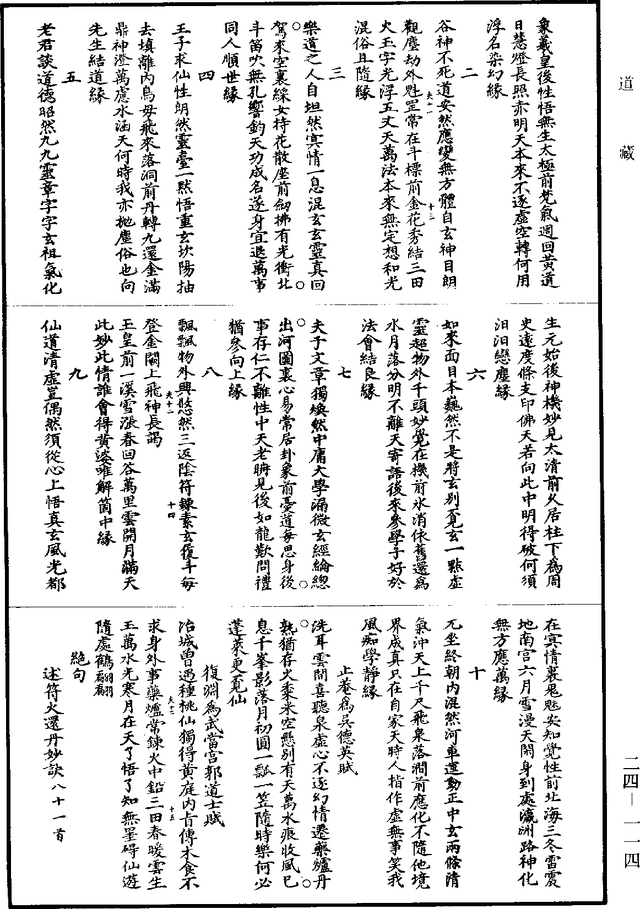 道藏
象羲皇後性悟無生太極前梵氣週回黃道
日慧燈長照亦明天本來不逐虛空轉何用
浮名染幻緣
二
谷神不死道安然應變無方體自玄神目朗
觀塵劫外魁罡常在斗標前金花秀結三田
火玉字光浮五丈天萬法本來無定想和光
混俗且隨緣
三
樂道之人自坦然冥情一息混玄玄靈真回
駕來空裏綵女持花散座前劒拂有光衝北
斗笛吹無孔響鈞天功成名遂身宜退萬事
同人順世緣
四
王子求仙性朗然靈臺一點悟重玄坎陽抽
去填離內烏母飛來落洞前丹轉九還金滿
鼎神澄萬慮水涵天何時我亦拋塵俗也向
先生結道緣
五
老君談道德昭然九九靈章字字玄祖氣化
生元始後神機妙見太清前久居柱下為周
史遠度條支印佛天若向此中明得破何須
汨汨戀塵緣
六
如來面目本巍然不是將玄別覓玄一點虛
靈超物外千頭妙覺在機前水消依舊還為
水月落分明不離天寄語後來參學子好於
法會結良緣
七
夫子文章獨煥然中庸大學漏微玄經綸總
出河圖裏心易常居卦象前憂道每思身後
事存仁不離性中天老聃見後如龍歎問禮
猶參向上緣
八
飄飄物外興悠然三返陰符鍊素玄復斗每
登金闕上飛神長謁
玉皇前一溪雪漲春回谷萬里雲開月滿天
此妙此情誰會得黃婆唯解箇中緣
九
仙道清虛豈偶然須從心上悟真玄風光都
在冥情裏思魁安知覺性前北海三冬雷震
地南宮六月雪漫天閑身到處瀛洲路神化
無方應萬緣
十
兀坐終朝內混然河車運動正中玄兩條清
氣沖天上千尺飛泉落澗前應化不隨他境
界成真只在自家天時人指作虛無事笑我
風痴學靜緣
止菴為吳德英賦
洗耳雲間喜聽泉虛心不逐幻情遷藥爐丹
熟猶存火乘米空懸別有天萬水痕收風已
息千峯影落月初圓一瓢一笠隨時樂何必
蓬萊更覓仙
復淵為武當宮郭道士賦
冶城曾遇種桃仙獨得黃庭內旨傳木食不
求身外事藥爐常鍊火中鉛三田春暖雲生
玉萬水光寒月在天了悟了知無罣碍仙遊
隨處鶴翩翩
絕句
述符火還丹妙訣八十一首
二四—一一四